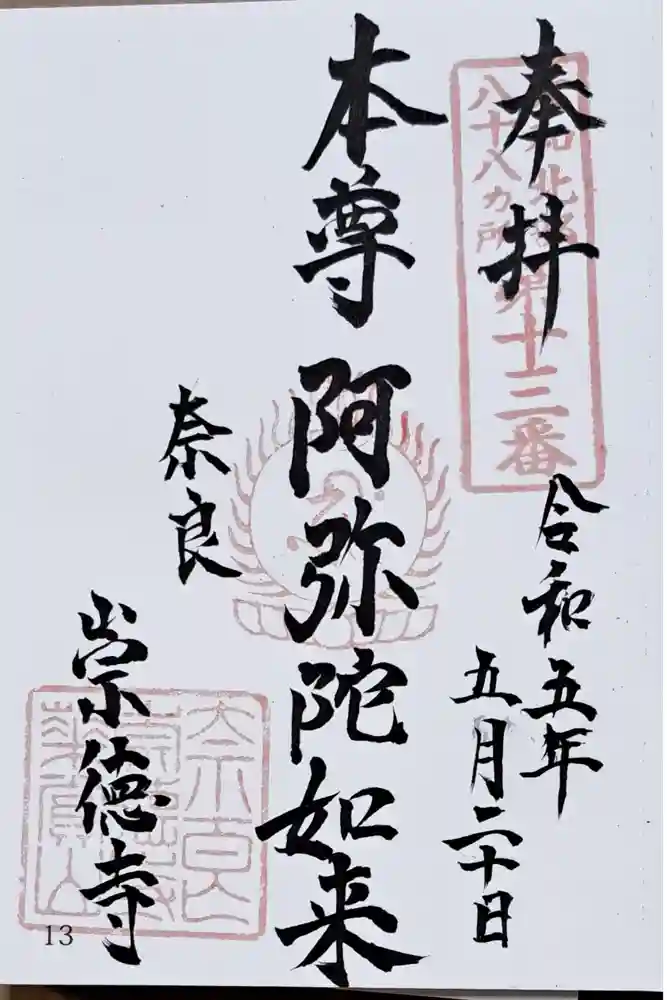 奉拝
八十八カ所
第十三番
令和五年
五月二十日
本尊 阿弥陀如来
奈良
崇徳寺
13